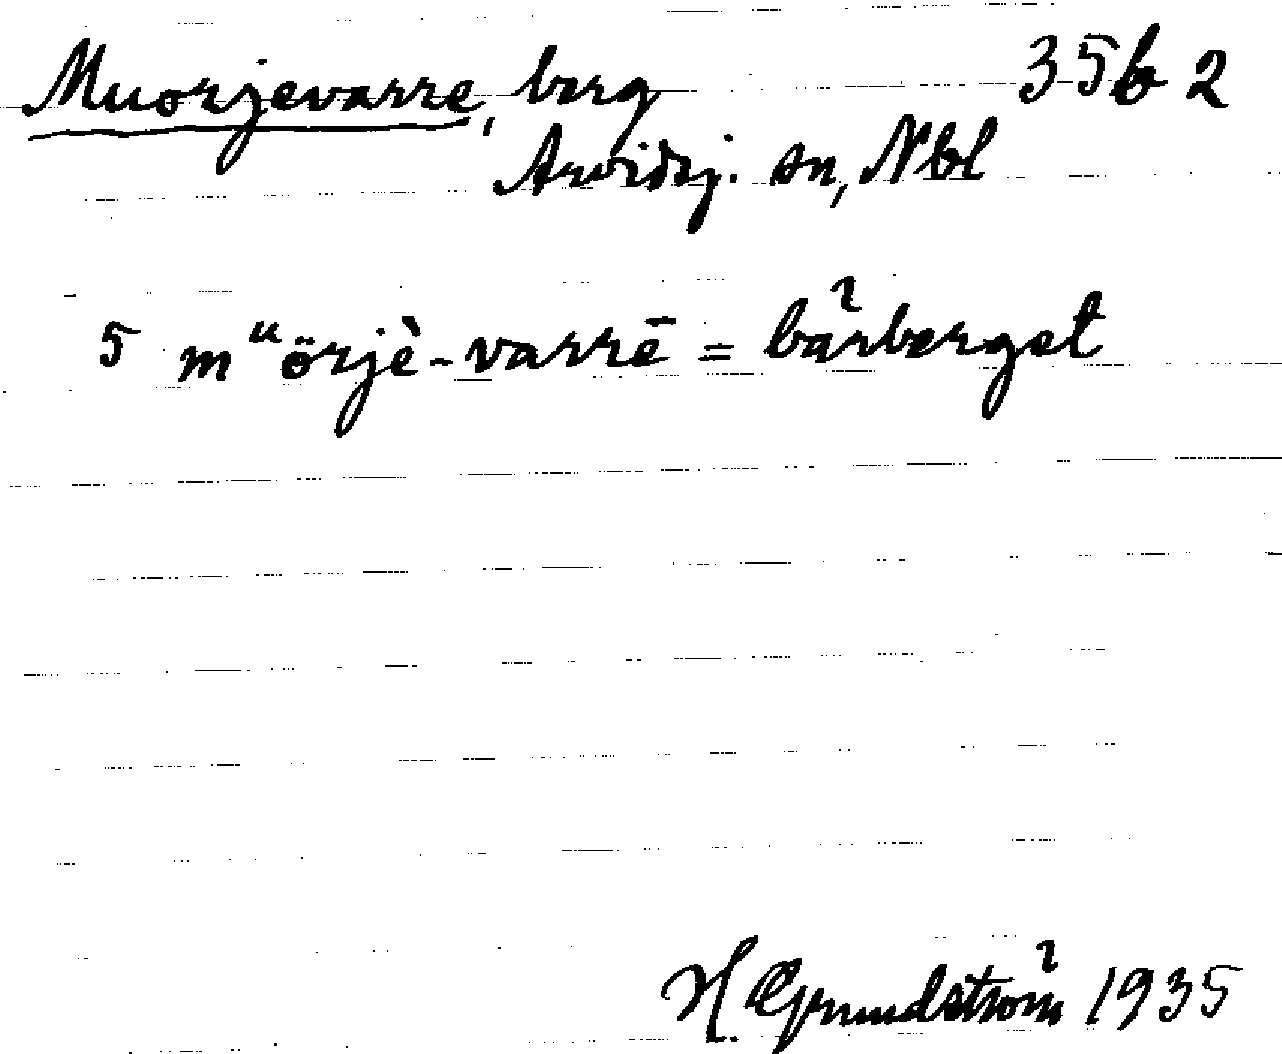 Muorjevarre, berg 35b 2
Arvidsj. sn, Nbl
5 mᵘörjè-varrē = bärberget
H. Grundström 1935